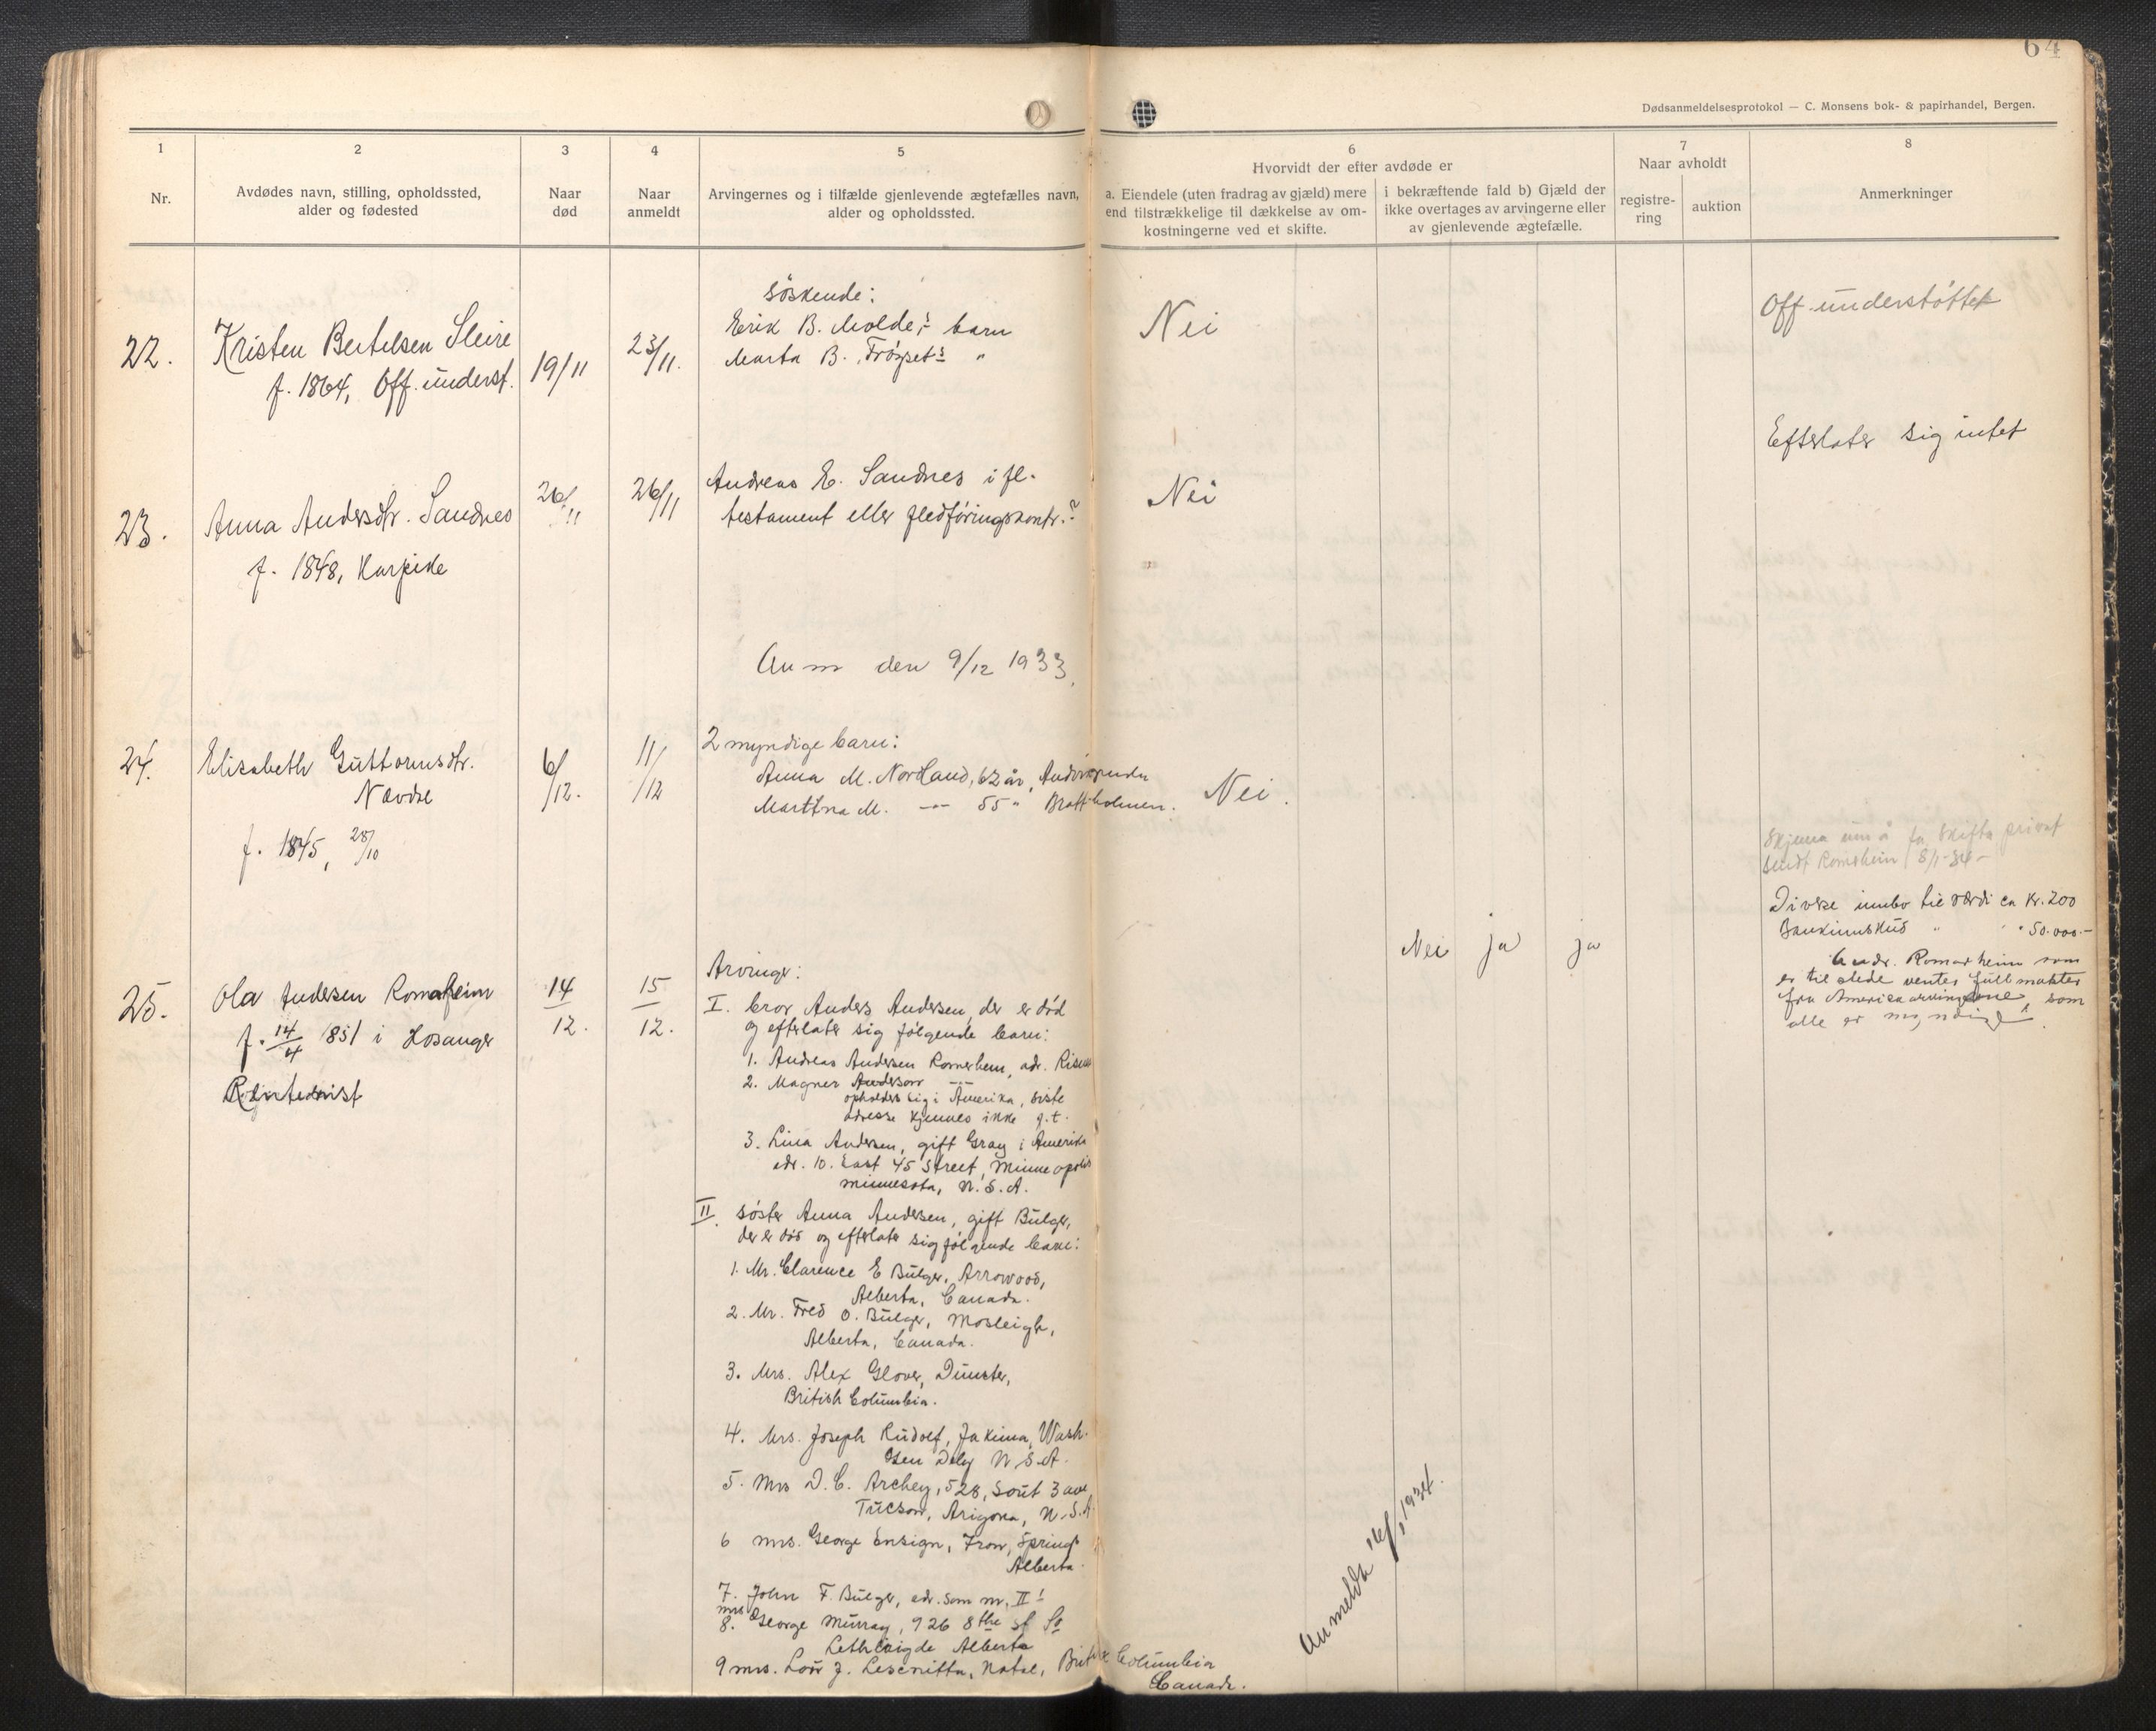 64
Dødsanmeldelsesprotokol — C. Monsens bok- & papirhandel, Bergen.
1
Nr.
2
Avdødes navn, stilling, opholdssted,
alder og fødested
3
Naar
død
4
Naar
anmeldt
5
Arvingernes og i tilfælde gjenlevende ægtefælles navn,
alder og opholdssted.
6
Hvorvidt der efter avdøde er
a. Eiendele (uten fradrag av gjæld) mere
end tilstrækkelige til dækkelse av om-
kostningerne ved et skifte.
i bekræftende fald b) Gjæld der
ikke overtages av arvingerne eller
av gjenlevende ægtefælle.
7
Naar avholdt
registre-
ring
auktion
8
Anmerkninger
22.
Kristen Bertelsen Sleire
f. 1864, Off. underst.
19/11
23/11.
Søskende:
Erik B. Molde's barn
Marta B. Frøyset's "
Nei
Off. understøttet
23.
Anna Andersdtr. Sandnes
f. 1848,
26/11
26/11
Andreas E. Sandnes i fl.
testament eller fledføringskontr.?
Nei
Efterlater sig intet
Anm den 9/12 1933.
24.
Elisabeth Guttormsdtr.
Nævdre
f. 1845, 28/10
6/12.
11/12
2 myndige barn:
Anna M. Nordland, 62 år,
Martina M. — 55 " Brattholmen.
Nei.
Skjema um å få skifta privat
sendt Romsheim 8/1-34 -
25.
Ola Andersen Romarheim
f. 14/4 1851 i Hosanger
14
12.
15
12.
Arvinger:
I. bror Anders Andersen, der er død
og efterlater sig følgende barn:
1. Andreas Andersen Romerhem, adr. Risnes
2. Magner Anderson
opholder sig i Amerika, siste
adresse kjennes ikke p.t.
3. Lina Andersen, gift Gray i Amerika
adr. 10. East 45 Street, Minneapolis
Minnesota, U.S.A.
II. søster Anna Andersen, gift Bulger,
der er død og efterlater sig følgende barn:
1. Mr. Clarence E Bulger, Arrowood,
Alberta, Canada.
2. Mr. Fred O. Bulger, Mosleigh,
Alberta, Canada.
3. Mrs. Alex Glover, Dunster,
British Columbia.
4. Mrs. Joseph Rudolf, Jakima, Wash.
Gen Dely U.S.A.
5. Mrs D. C. Archey, 528, Sout 3 ave
Tucson, Arizona, U.S.A
6 mrs. George Ensign, Iron, Springs
Alberta.
7. John F. Bulger, adr. som nr. II 1
8. mrs George Murray, 926 8the st So
Lethbrigde Alberta
9 mrs. Lour J. Natal, British Columbia
Canada.
Nei
ja
ja
Diverse innbo til værdi ca kr. 200
Bankinnskud " " 50.000.-
Andr. Romarheim som
er til stede venter fullmakter
fra Amerikaarvingene, som
alle er myndige.
Anmeldt 16/1 1934.